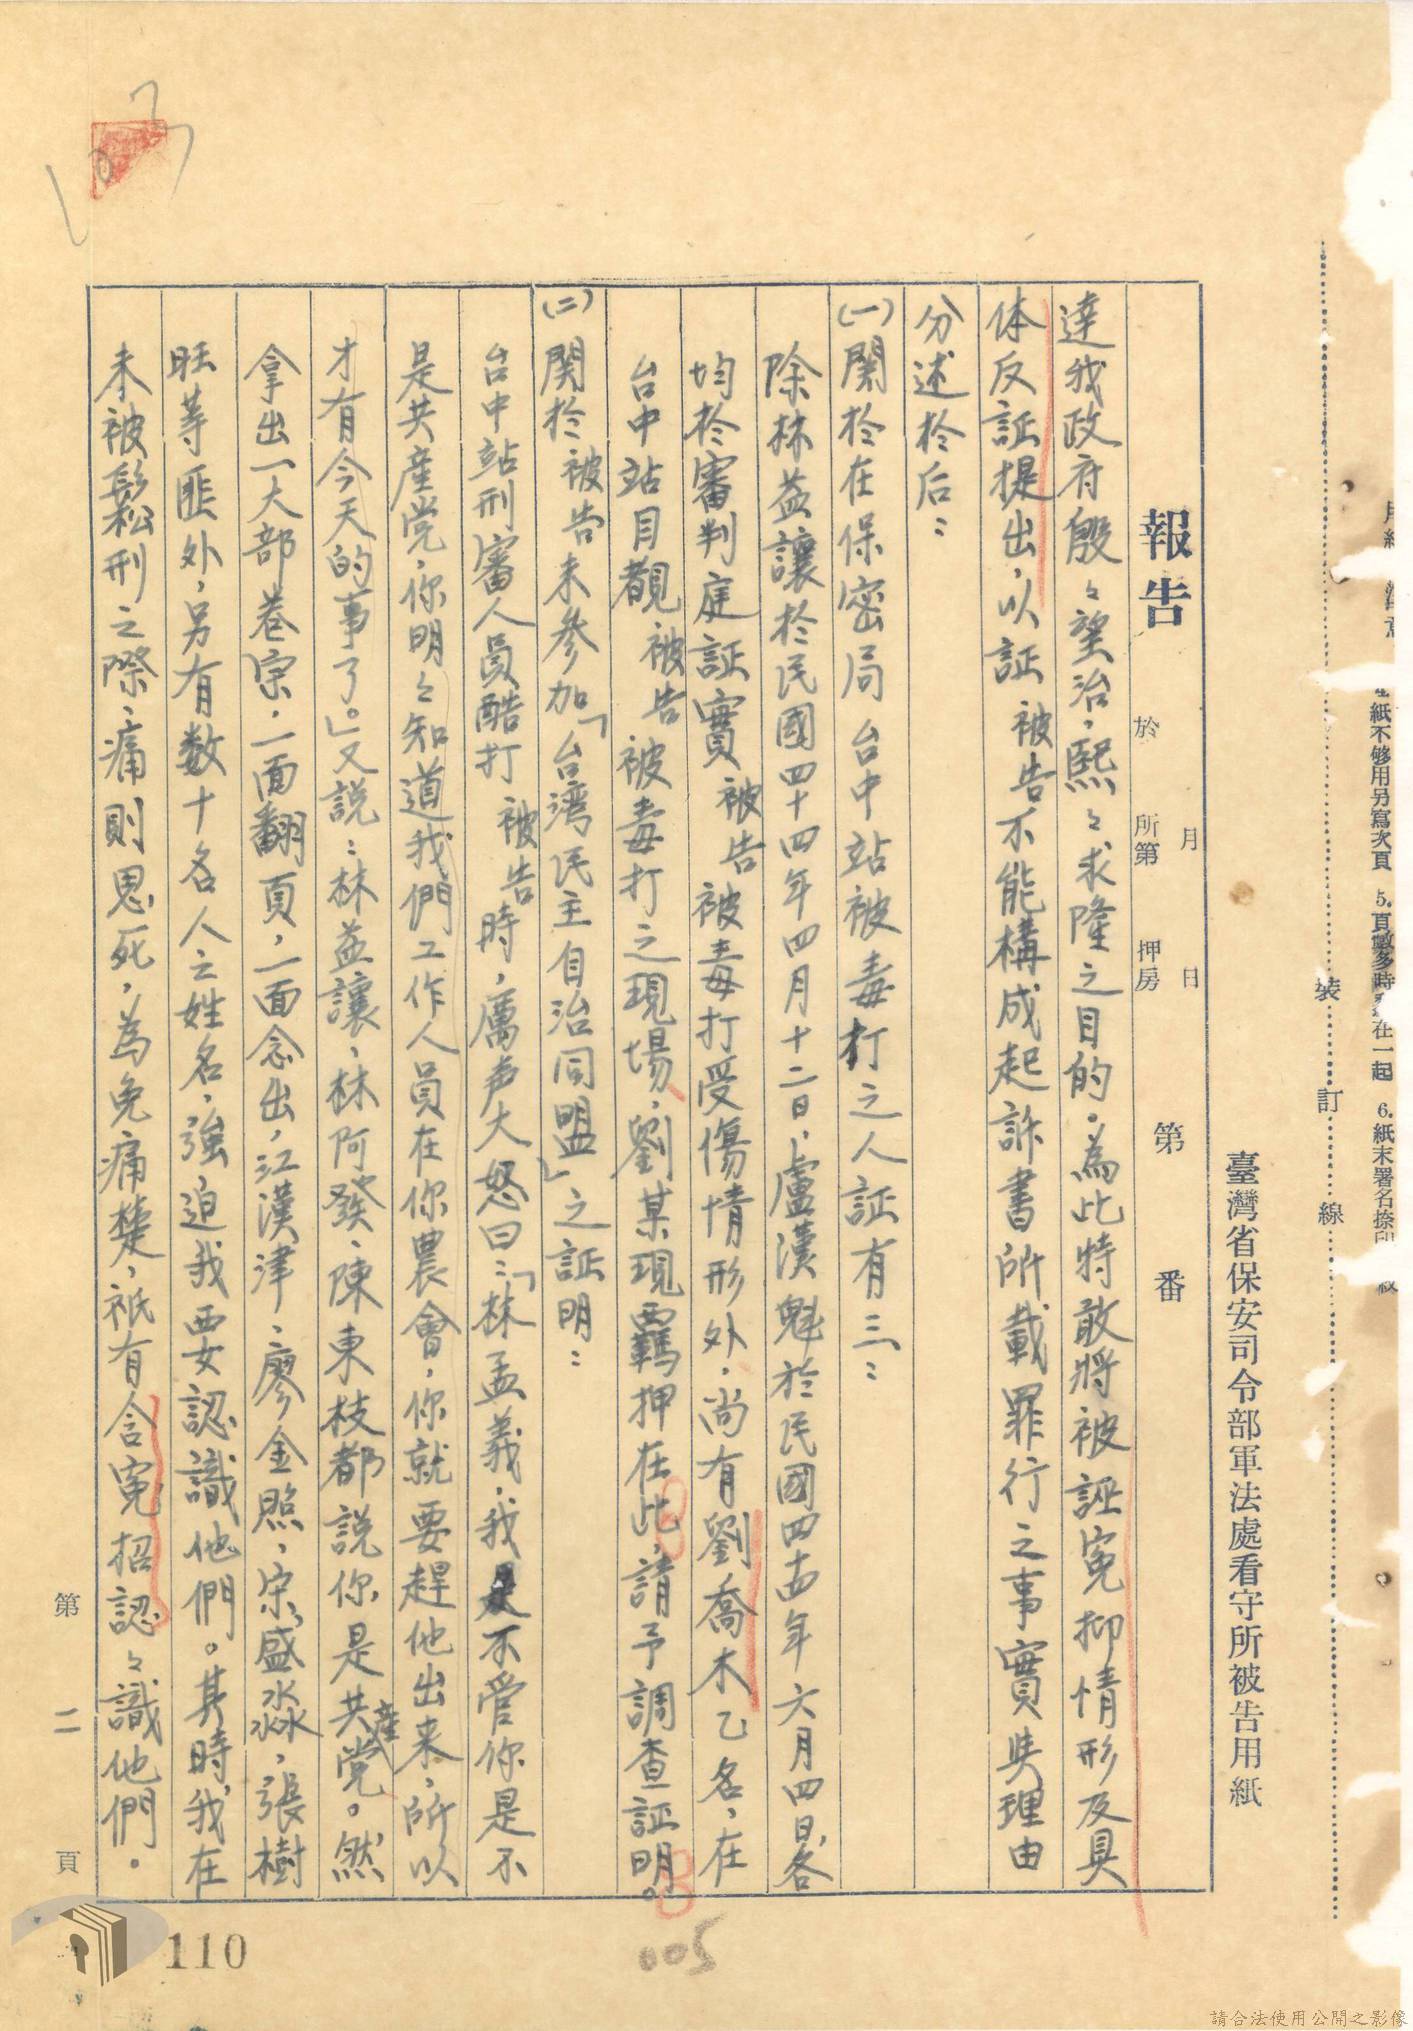 紙不够用另寫次頁 5.頁數多時 在一起 6.紙末署名捺印
裝 訂 線
臺灣省保安司令部軍法處看守所被告用紙
報告 於 月 日 所第 押房 第 番
達我政府殷々望治,熙々求隆之目的。為此特敢將被誣冤抑情形及具
体反証提出,以証被告不能構成起訴書所載罪行之事實與理由
分述於后:
(一)関於在保密局台中站被毒打之人証有三:
除林益讓於民國四十四年四月十二日,盧漢魁於民國四十四年六月四日,各
均於審判庭証實被告被毒打受傷情形外,尚有劉喬木乙名,在
台中站目覩被告被毒打之現場,劉某現羈押在此,請予調查証明。
(二)関於被告未參加「台湾民主自治同盟」之証明:
台中站刑審人員酷打被告時,厲声大怒曰:「林孟義,我是不管你是不
是共產党,你明々知道我們工作人員在你農會,你就要趕他出来,所以
才有今天的事了。」又說:林益讓,林阿發,陳東枝都說你是共產党。然
拿出一大部卷宗,一面翻頁,一面念出,江漢津,廖金照,宋盛淼,張樹
旺等匪外,另有数十名人之姓名,強迫我要認識他們。其時,我在
未被鬆刑之際,痛則思死,為免痛楚,祇有含冤招認々識他們。
第 二 頁
110
005
請合法使用公開之影像